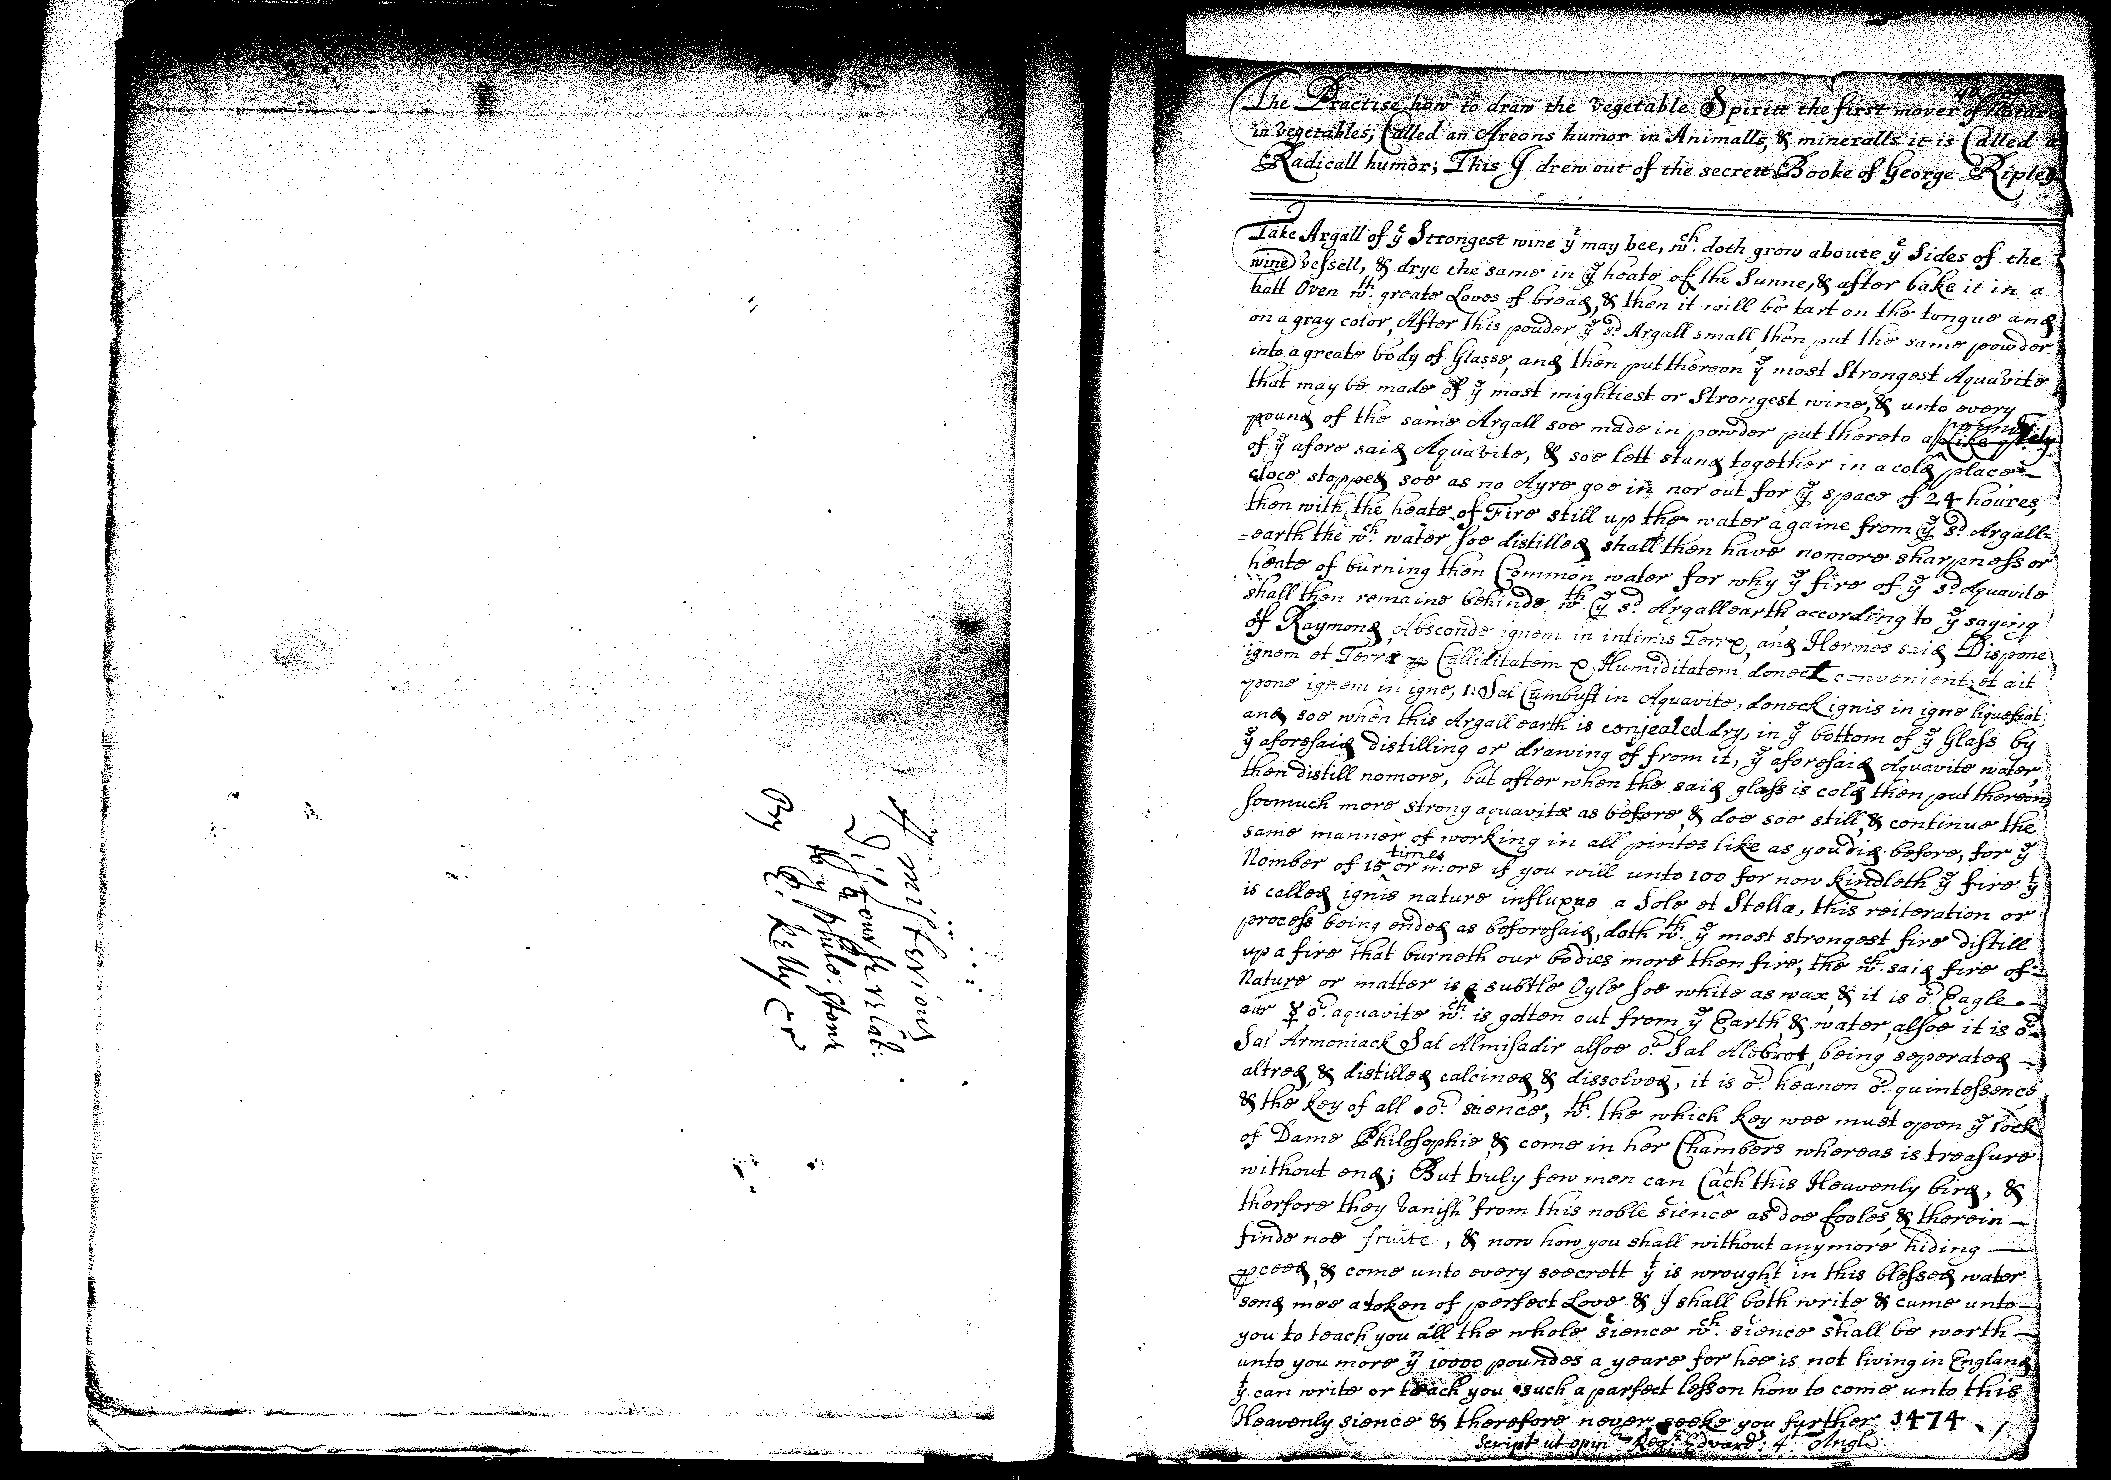 A misterious
Discourse relat:
by philo: Stone
By E: Kelly Cr
The Practise how to draw the Vegetable Spiritt the first mover of Nature
in Vegetables; Called an Areons humor in Animalls, & mineralls it is Called a
Radicall humor; This I drew out of the secrett Booke of George Ripley
Take Argall of yͤ Strongest wine yͭ may bee, wͨʰ. doth grow aboute yͤ Sides of the
wine Vessell, & drye the same in yͤ heate of the Sunne, & after bake it in a
hott Oven wͭʰ. greate Loves of bread, & then it will be tart on the tongue and
on a gray color, After this powder yͤ sᵈ Argall small, then put the same powder
into a greate body of Glasse, and then put thereon yͤ most Strongest Aquavite
that may be made of yͤ most mightiest or Strongest wine, & unto every
pound of the same Argall soe made in powder put thereto a
of yͤ afore said Aquavite, & soe lett stand together in a cold place
cloce stopped soe as no Ayre goe in nor out for yͤ space of 24 houres,
then with the heate of Fire still up the water againe from yͤ sᵈ. Argall
=earth the wͨʰ. water soe distilled shall then have nomore sharpness or
heate of burning then Common water for why yͤ fire of yͤ sᵈ. Aquavite
shall then remaine behinde wͭʰ. yͤ sᵈ. Argall earth, according to yͤ saying
of Raymond, Absconde ignem in intimis Terræ, and Hermes said Dispone
ignem et Terræ Calliditatem & Humiditatem, doneck convenient, et ait
pone ignem in igne, i: Sal Cumbust in Aquavite, doneck ignis in igne liquefiat,
and soe when this Argall earth is conjealed dry, in yͤ bottom of yͤ Glass by
yͤ aforesaid distilling or drawing of from it, yͤ aforesaid Aquavite water,
then distill nomore, but after when the said glass is cold then put thereon
soomuch more strong aquavite as before, & doe soe still, & continue the
same manner of working in all pintes like as you did before, for yͤ
Nomber of 15 times or more if you will unto 100 for now kindleth yͤ fire yͭ
is called ignis nature influxus a Sole et Stella, this reiteration or
process being ended as beforesaid, doth wͭʰ. yͤ most strongest fire distill
up a fire that burneth our bodies more then fire, the wͨʰ. said fire of
Nature or matter is a subtle Oyle soe white as wax, & it is oʳ. Eagle
our ☿ oʳ. aquavite wͨʰ. is gotten out from yͤ Earth, & water, alsoe it is oʳ.
Sal Armoniack Sal Almisadir alsoe oʳ. Sal Alobrot being seperated
altred, & distilled calcined, & dissolved, it is oʳ. heanon oʳ. quintessence
& the key of all oʳ. sience, wͭʰ. the which key wee must open yͤ lock
of Dame Philosophie & come in her Chambers whereas is treasure
without end; But truly few men can Catch this Heavenly bird, &
therfore they Vanish from this noble sience as doe fooles, & therein
finde noe fruite, & now how you shall without anymore hiding
ꝑceed, & come unto every seecrett yͭ is wrought in this blessed water
send mee a token of perfect Love & I shall both write & cume unto
you to teach you all the whole sience wͨʰ. sience shall be worth
unto you more yⁿ 10000 poundes a yeare for hee is not living in England
yͭ can write or teach you such a parfect lesson how to come unto this
Heavenly sience & therefore never seeke you further 1474
Script ut opin Reg: Edvard: 4ͭ. Angl: